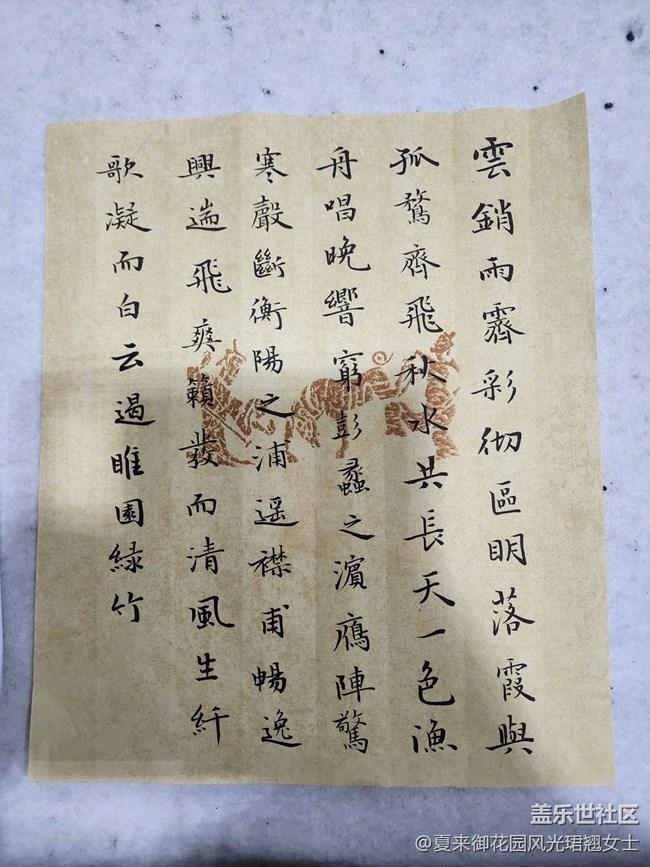 雲銷雨霽彩彻區明落霞與
孤鶩齊飛秋水共長天一色漁
舟唱晚響窮彭蠡之濵鴈陣驚
寒聲斷衡陽之浦遥襟甫暢逸
興遄飛爽籟發而清風生纤
歌凝而白云遏睢園緑竹
盖乐世社区
@夏来御花园风光珺翘女士